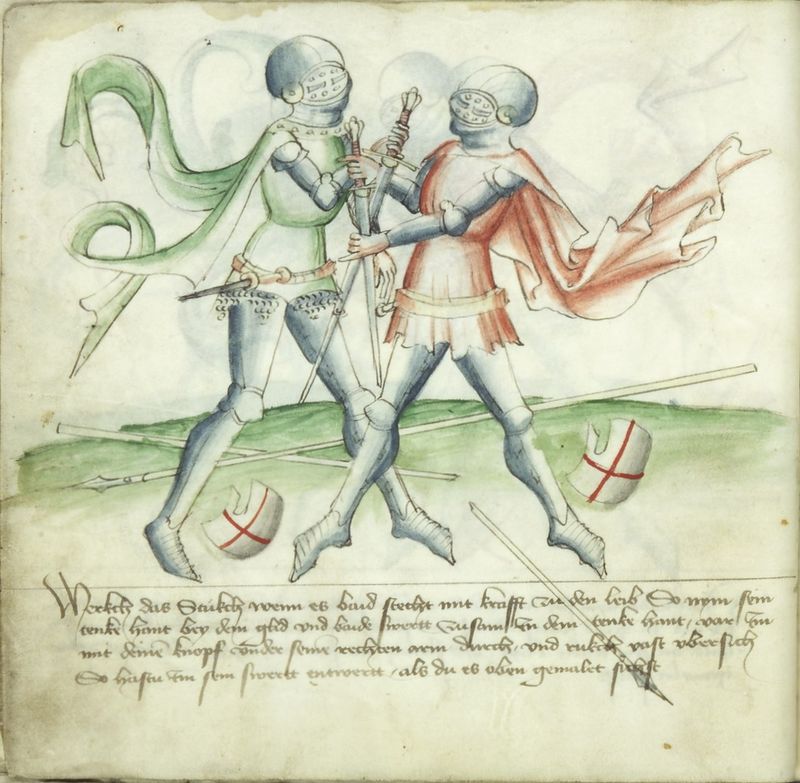 Merckh das Stukch wenn es baid stecht mit krafft zu den leib So nym sein
tenke hant bey dem glid vnd baide swertt zusam in dein tenke hant, var im
mit deinē knopf vnder seinē rechten arm durch, vnd rukch vast vbersich
So hastu im sein swertt entwertt, als du es oben gemalet sichst